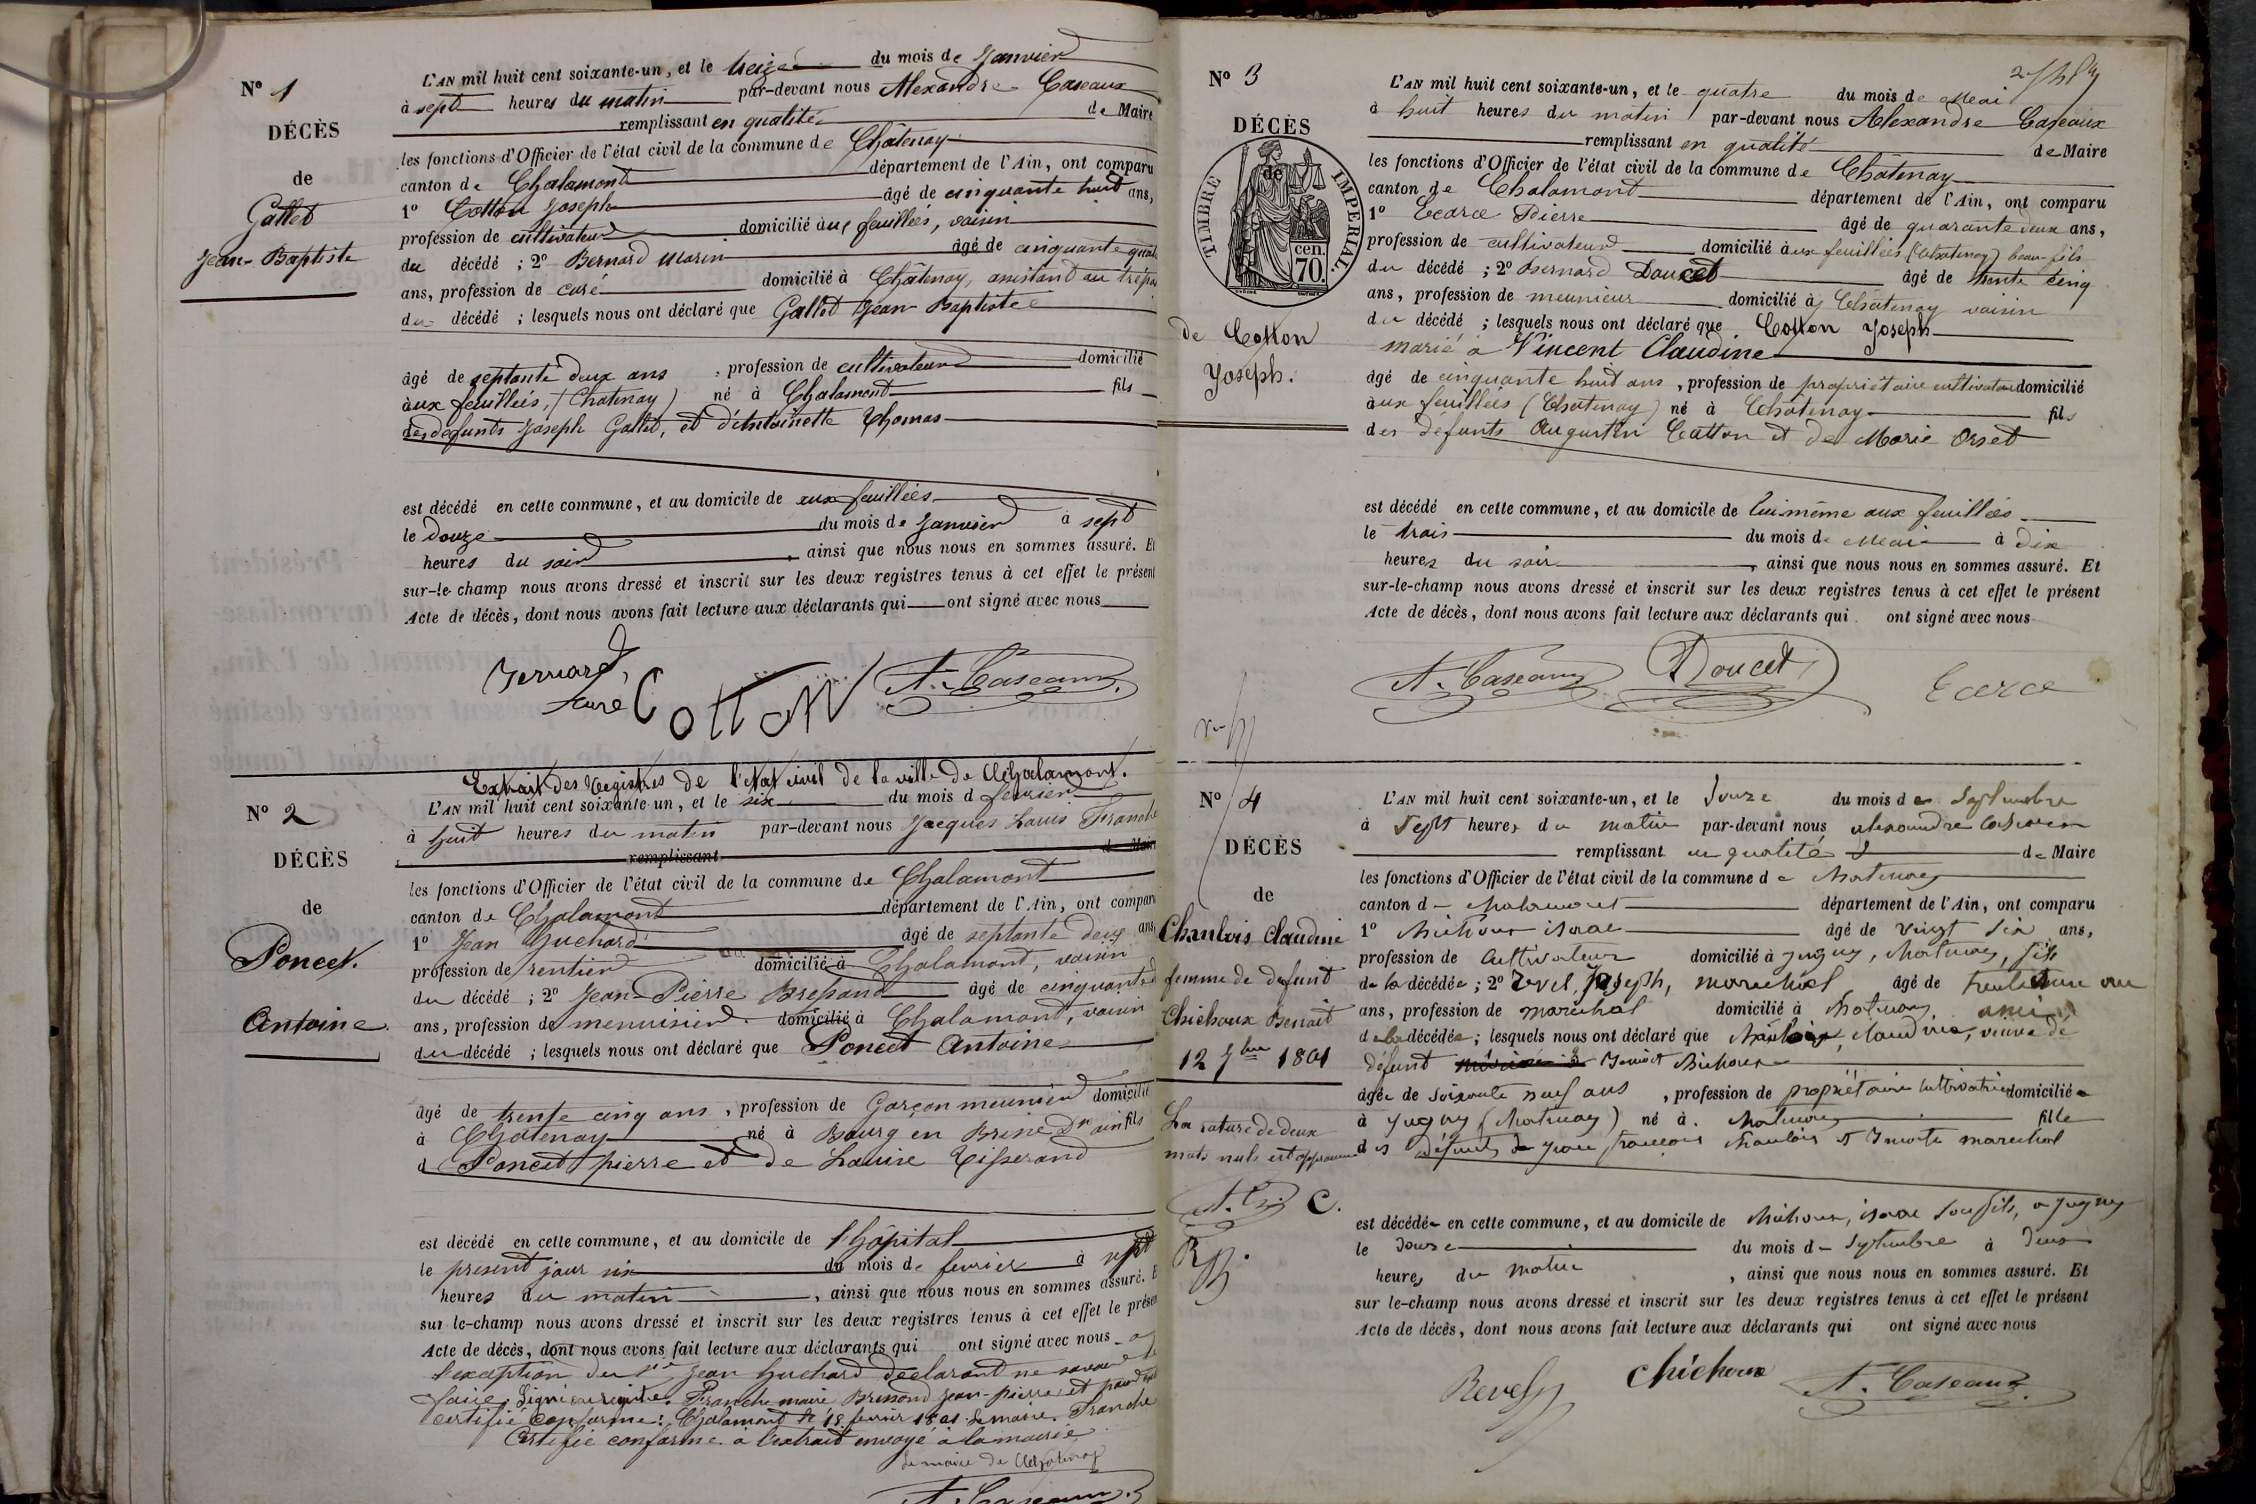 N° 1
DÉCÈS
de
Gallet
Jean-Baptiste
L'AN mil huit cent soixante-un, et le treize du mois de Janvier
à sept heures du matin par-devant nous Alexandre Caseaux
remplissant en qualité de Maire
les fonctions d'Officier de l'état civil de la commune de Châtenay
canton de Chalamont département de l'Ain, ont comparu
1° Cotton Joseph âgé de cinquante huit ans,
profession de cultivateur domicilié aux feuillées, voisin
du décédé ; 2° Bernard Marin âgé de cinquante quatre
ans, profession de curé domicilié à Châtenay, assistant au trépas
du décédé ; lesquels nous ont déclaré que Gallet Jean Baptiste
âgé de septante deux ans , profession de cultivateur domicilié
aux feuillées, (Chatenay) né à Chalamont fils
des defunts Joseph Gallet, et d'Antoinette Thomas
est décédé en cette commune, et au domicile de aux feuillées
le Douze du mois de Janvier à sept
heures du soir , ainsi que nous nous en sommes assuré. Et
sur-le-champ nous avons dressé et inscrit sur les deux registres tenus à cet effet le présent
Acte de décès, dont nous avons fait lecture aux déclarants qui ont signé avec nous
Bernard,
curé Cotton A. Caseaux
Extrait des Registres de l'état civil de la ville de Chalamont.
N° 2
DÉCÈS
de
Poncet
Antoine
L'AN mil huit cent soixante-un, et le six du mois d fevrier
à huit heures du matin par-devant nous Jacques Louis Franche
remplissant de Maire
les fonctions d'Officier de l'état civil de la commune de Chalamont
canton de Chalamont département de l'Ain, ont comparu
1° Jean Guchard âgé de septante deux ans,
profession de rentier domicilié à Chalamont, voisin
du décédé ; 2° Jean-Pierre Bressand âgé de cinquante
ans, profession de menuisier domicilié à Chalamont, voisin
du décédé ; lesquels nous ont déclaré que Poncet Antoine
âgé de trente cinq ans , profession de Garçon meunier domicilié
à Chatenay né à Bourg en Bresse Dr ain fils
d Poncet pierre et de Louise Tisserand
est décédé en cette commune, et au domicile de l'hôpital
le present jour six du mois de fevrier à sept
heures du matin , ainsi que nous nous en sommes assuré. E
sur le-champ nous avons dressé et inscrit sur les deux registres tenus à cet effet le présen
Acte de décès, dont nous avons fait lecture aux déclarants qui ont signé avec nous a
l'exception du Sr Jean Guchard declarant ne savoir le
faire. Signé au registre. Franche maire Bressand Jean-pierre et pour
certifié conforme: Chalamont le 18 fevrier 1861 le maire. Franche
Certifié conforme à l'extrait envoyé à la mairie
Le maire de Chatenay
A. Caseaux
N° 3
DÉCÈS
de
TIMBRE IMPERIAL.
cen.
70.
de Cotton
Joseph.
L'AN mil huit cent soixante-un, et le quatre du mois de Mai
à huit heures du matin par-devant nous Alexandre Caseaux
remplissant en qualité de Maire
les fonctions d'Officier de l'état civil de la commune de Châtenay
canton de Chalamont département de l'Ain, ont comparu
1° Ecarce Pierre âgé de quarante deux ans,
profession de cultivateur domicilié aux feuillées (Chatenay) beau-fils
du décédé ; 2° Bernard Doucet âgé de trente cinq
ans, profession de meunieur domicilié à Châtenay voisin
du décédé ; lesquels nous ont déclaré que Cotton Joseph
marié à Vincent Claudine
âgé de cinquante huit ans , profession de propriétaire cultivateur domicilié
aux feuillées (Chatenay) né à Châtenay fils
des défunts Augustin Cotton et de Marie Orset
est décédé en cette commune, et au domicile de lui-même aux feuillées
le trois du mois de Mai à dix
heures du soir , ainsi que nous nous en sommes assuré. Et
sur-le-champ nous avons dressé et inscrit sur les deux registres tenus à cet effet le présent
Acte de décès, dont nous avons fait lecture aux déclarants qui ont signé avec nous
A. Caseaux Doucet Ecarce
N° 4
DÉCÈS
de
Chanlois Claudine
femme de defunt
Chichoux Benoit
12 7bre 1861
La rature de deux
mots nuls est approuvée
A. C. C.
R
L'AN mil huit cent soixante-un, et le Douze du mois de Septembre
à Sept heures du matin par-devant nous alexandre Caseaux
remplissant en qualité de Maire
les fonctions d'Officier de l'état civil de la commune de Chatenay
canton de Chalamont département de l'Ain, ont comparu
1° Chichoux isaac âgé de vingt six ans,
profession de Cultivateur domicilié à Jugny, Chatenay, fils
de la décédée ; 2° Revel, Joseph, marechal âgé de trente un
ans, profession de maréchal domicilié à Chatenay, ami
de la décédée ; lesquels nous ont déclaré que Chanlois, Claudine, veuve de
défunt Benoit Chichoux
âgée de soixante neuf ans , profession de propriétaire cultivatrice domiciliée
à Jugny (Chatenay) né à Chatenay fille
des défunts Jean françois Chanlois et Benoite marechal
est décédée en cette commune, et au domicile de Chichoux, isaac son fils, a Jugny
le Douze du mois de Septembre à Deux
heures du matin , ainsi que nous nous en sommes assuré. Et
sur le-champ nous avons dressé et inscrit sur les deux registres tenus à cet effet le présent
Acte de décès, dont nous avons fait lecture aux déclarants qui ont signé avec nous
Revel Chichoux A. Caseaux